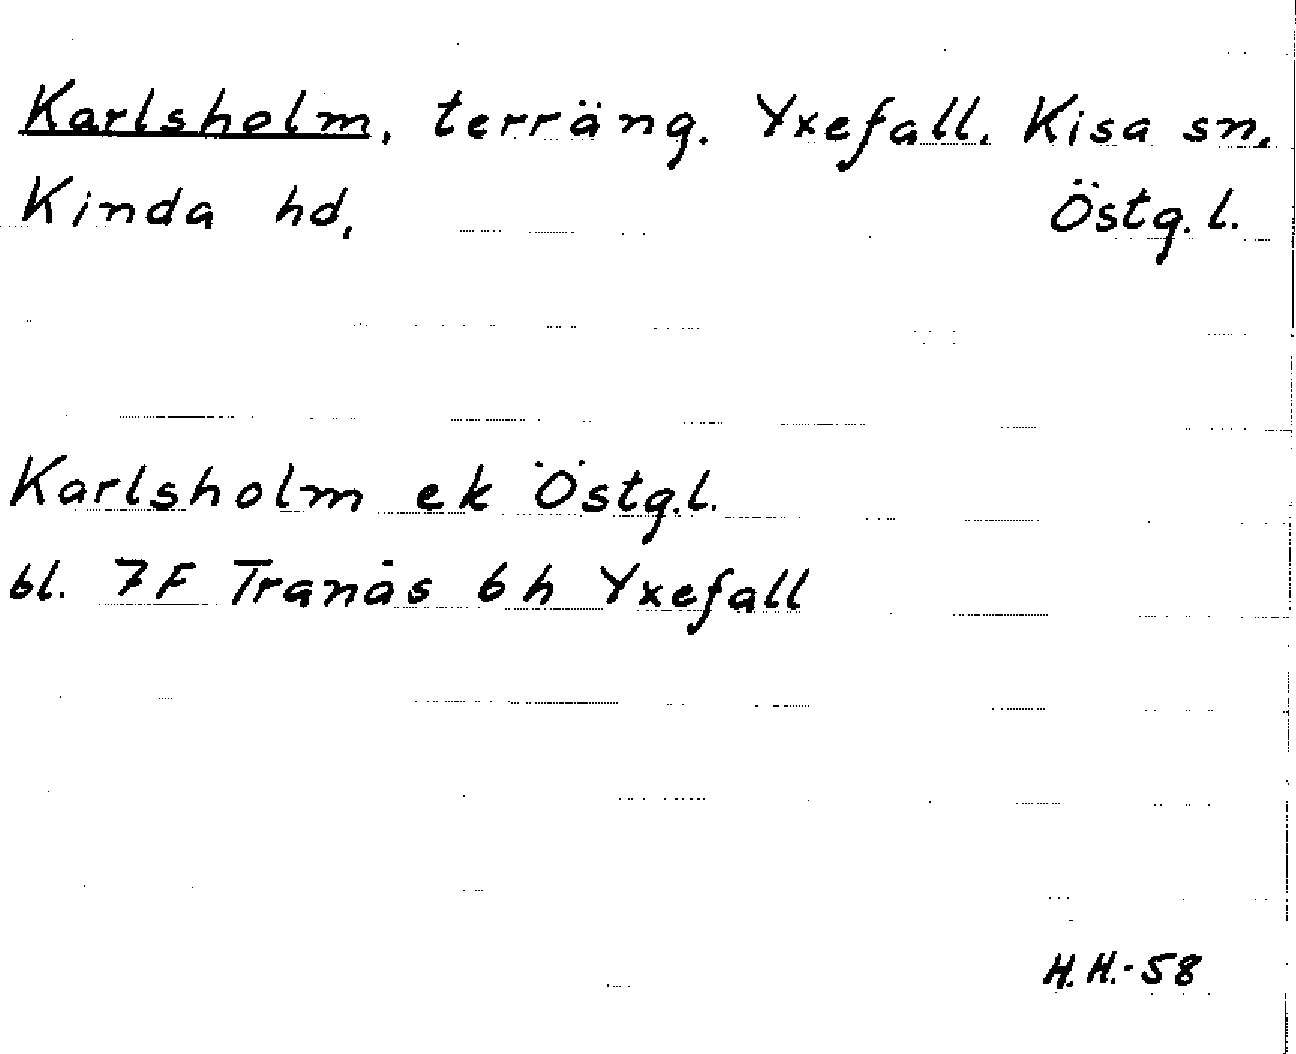 Karlsholm, terräng. Yxefall. Kisa sn,
Kinda hd, Östg. l.
Karlsholm ek Östg.l.
bl. 7F Tranås 6h Yxefall
H.H.-58